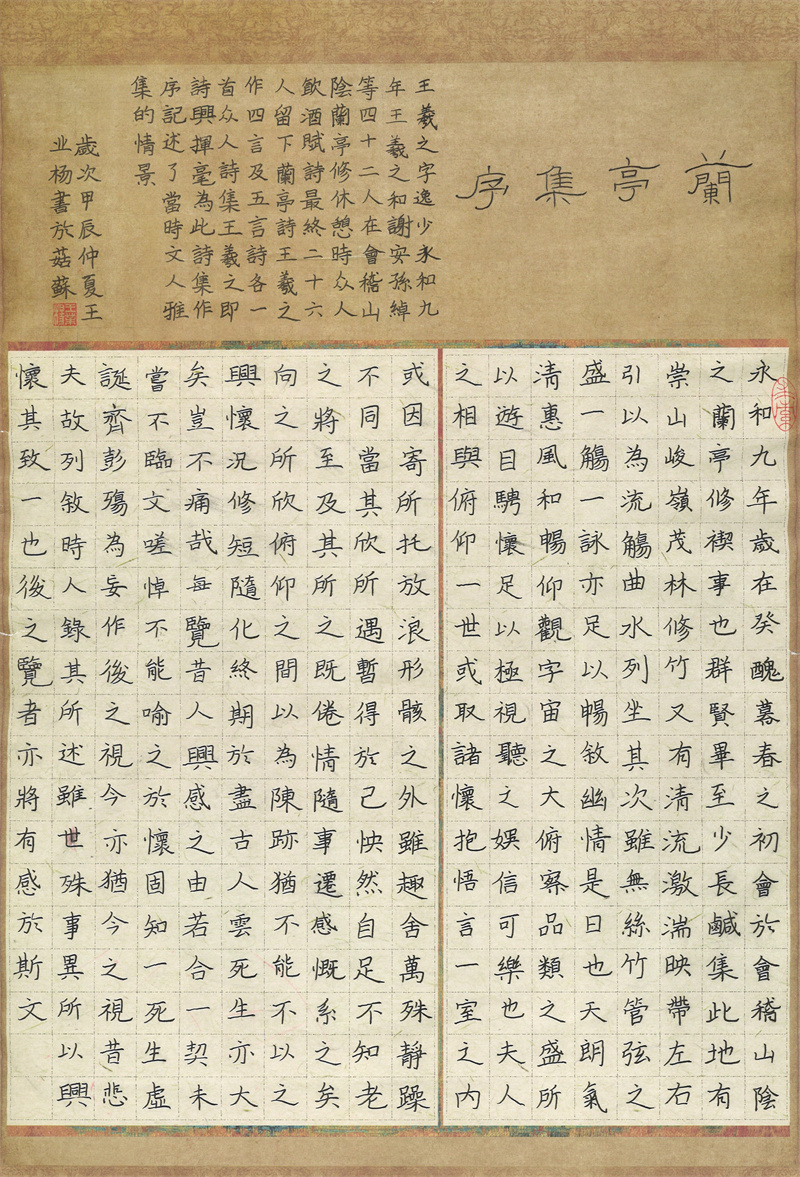 蘭亭集序
王羲之字逸少永和九
年王羲之和謝安孫綽
等四十二人在會稽山
陰蘭亭修休憩時众人
飲酒賦詩最終二十六
人留下蘭亭詩王羲之
作四言及五言詩各一
首众人詩集王羲之即
詩興揮毫為此詩集作
序記述了當時文人雅
集的情景
歲次甲辰仲夏王
业杨書於菇蘇
永和九年歲在癸醜暮春之初會於會稽山陰
之蘭亭修禊事也群賢畢至少長鹹集此地有
崇山峻嶺茂林修竹又有清流激湍映帶左右
引以為流觴曲水列坐其次雖無絲竹管弦之
盛一觴一詠亦足以暢敘幽情是日也天朗氣
清惠風和暢仰觀字宙之大俯察品類之盛所
以遊目騁懷足以極視聽之娛信可樂也夫人
之相與俯仰一世或取諸懷抱悟言一室之內
或因寄所托放浪形骸之外雖趣舍萬殊靜躁
不同當其欣所遇暫得於己怏然自足不知老
之將至及其所之既倦情隨事遷感慨系之矣
向之所欣俯仰之間以為陳跡猶不能不以之
興懷況修短隨化終期於盡古人雲死生亦大
矣豈不痛哉每覽昔人興感之由若合一契未
嘗不臨文嗟悼不能喻之於懷固知一死生虛
誕齊彭殤為妄作後之視今亦猶今之視昔悲
夫故列敘時人錄其所述雖世殊事異所以興
懷其致一也後之覽者亦將有感於斯文